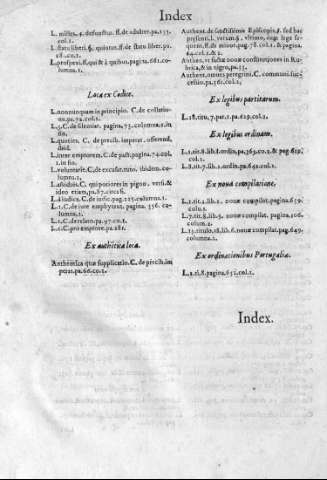 Index
L. miles, §. defunctus. ff. de adulter. pa. 135.
col. 1.
L. statu liberi. §. quintus. ff. de statu liber. pa.
col. 1.
L. prosperi, ff. qui & à quibus, pagina, 681. co-
lumna. 1.
Loca ex Codice.
L. nonnunquam in principio. C. de collatio-
col. 1.
L. 5. C. de pagina, 75. columna. 1. in
fin.
L. quoties, C. de precib. imperat. offerend.
L. inter emptorem. C. de pact. pagin. 74. col.
1. in fin.
L. voluntarie. C. de excusat. tuto. ibidem. co-
lumna. 1.
L. assiduis. C. qui potiores in pignor. versi. &
ideo etiam, pa. 87. col. 2.
L. à iudice. C. de iudic. pag. 123. columna. 1.
L. 1. C. de iure emphyteut. pagina. 356. co-
lumna. 1.
L. 1. C. de relato. pa. 97. co. 1.
L. 1. C. pro emptore. pa. 281.
Ex authētica loca.
Authentica quæ supplicatio. C. de precib. im
peras. pa. 66. co. 1.
Authent. de sanctissimis Episcopis. §. sed hac
præsenti. l. versum. §. ultimo, cum lege se-
quent. ff. de minor. pag. 78. col. 1. & pagina.
64. col. 1. & 2.
Authen. ut factæ novæ constitutiones in Ru
brica, & in nigro, pa. 35.
Authent. omnes peregrini. C. communi. suc-
cessio, pa. 361. col. 1.
Ex legibus partitarum.
L. 18. titu. 7. par. 1. pa. 629. col. 1.
Ex legibus ordinam.
L. 1. tit. 8. lib. 1. ordin. pa. 369. co. 1. & pag. 629.
col. 1.
L. 8. tit. 7. lib. 1. ordin. pa. 641. col. 1.
Ex noua compilatione.
L. 1. tit. 4. lib. 1. nouæ compilat. pagina. 659.
colu. 1.
L. 7. tit. 8. lib. 5. nouæ compilat. pagina, 106.
colum. 2.
L. 13. titulo. 18. lib. 6. nouæ compilat. pag. 649.
columna. 1.
Ex ordinationibus Portugaliæ.
L. 2. ti. 8. pagina, 651. col. 1.
Index.